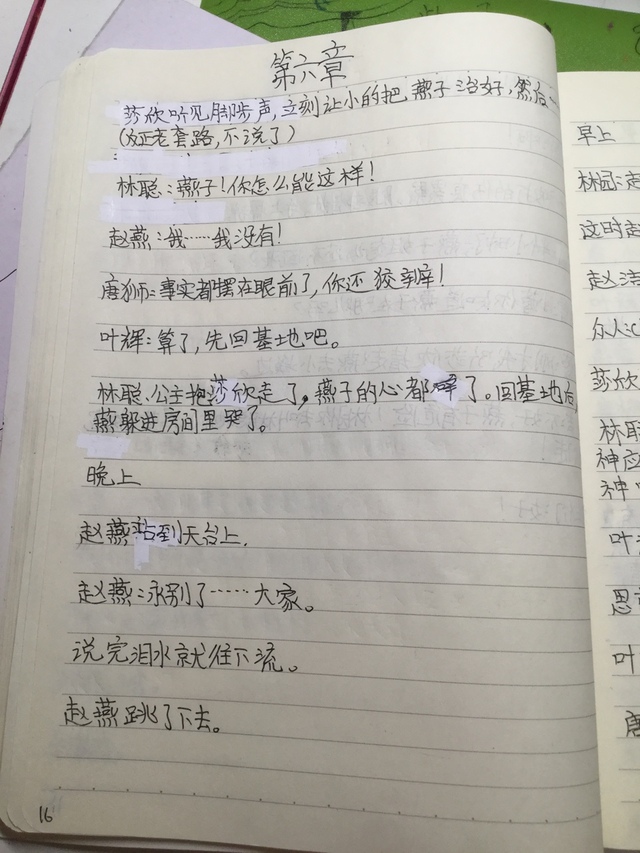 第六章
莎欣听见脚步声,立刻让小的把燕子治好,然后…
(反正老套路,不说了)
林聪:燕子!你怎么能这样!
赵燕:我……我没有!
唐狮:事实都摆在眼前了,你还狡辩!
叶辉:算了,先回基地吧。
林聪公主抱莎欣走了,燕子的心都碎了。回基地后,
燕躲进房间里哭了。
晚上
赵燕站到天台上,
赵燕:永别了……大家。
说完泪水就往下流。
赵燕跳了下去。
16
早上
林园:赵
这时赵
赵洁
众人:
莎欣
林聪
神应
神
叶
思
叶
唐